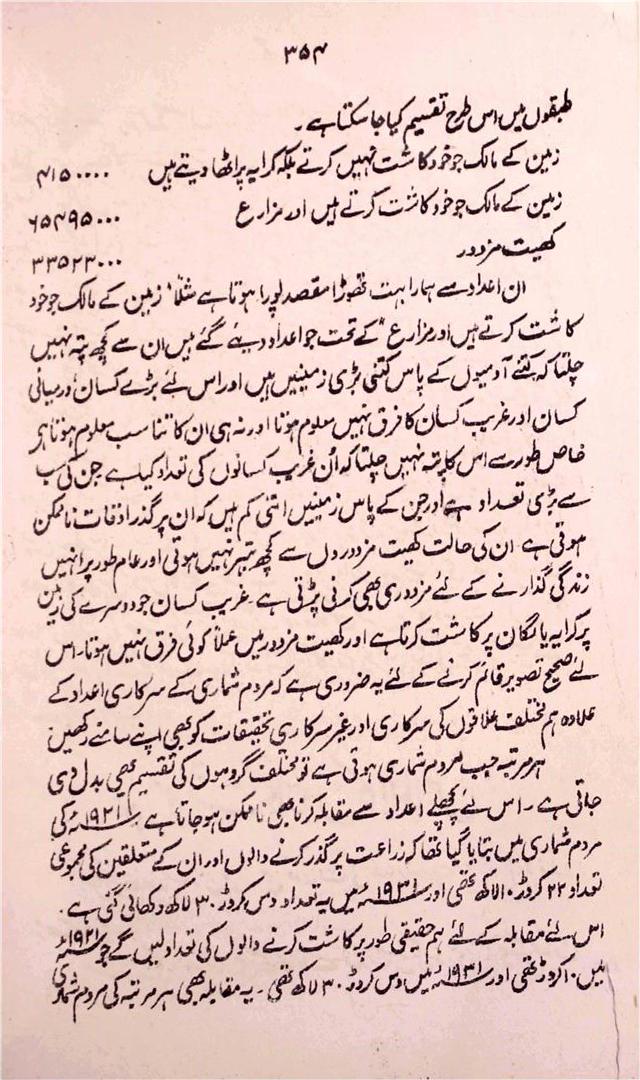 ۳۵۴
طبقوں میں اس طرح تقسیم کیا جا سکتا ہے۔
زمین کے مالک جو خود کاشت نہیں کرتے بلکہ کرایہ پر اٹھا دیتے ہیں ۴۱۵۰۰۰۰
زمین کے مالک جو خود کاشت کرتے ہیں اور مزارع ۶۵۴۹۵۰۰۰
کھیت مزدور ۳۳۵۲۳۰۰۰
ان اعداد سے ہمارا بہت تھوڑا مقصد پورا ہوتا ہے مثلاً ”زمین کے مالک جو خود
کاشت کرتے ہیں اور مزارع“ کے تحت جو اعداد دیئے گئے ہیں ان سے کچھ پتہ نہیں
چلتا کہ کتنے آدمیوں کے پاس کتنی بڑی زمینیں ہیں اور اس لئے بڑے کسان، درمیانی
کسان اور غریب کسان کا فرق نہیں معلوم ہوتا اور نہ ہی ان کا تناسب معلوم ہوتا ہر
خاص طور سے اس کا پتہ نہیں چلتا کہ اُن غریب کسانوں کی تعداد کیا ہے جن کی سب
سے بڑی تعداد ہے اور جن کے پاس زمینیں اتنی کم ہیں کہ ان پر گذر اوقات ناممکن
ہوتی ہے ان کی حالت کھیت مزدوروں سے کچھ بہتر نہیں ہوتی اور عام طور پر انہیں
زندگی گذارنے کے لئے مزدوری بھی کرنی پڑتی ہے۔ غریب کسان جو دوسرے کی زمین
پر کرایہ یا لگان پر کاشت کرتا ہے اور کھیت مزدور میں عملاً کوئی فرق نہیں ہوتا۔ اس
لئے صحیح تصویر قائم کرنے کے لئے یہ ضروری ہے کہ مردم شماری کے سرکاری اعداد کے
علاوہ ہم مختلف علاقوں کی سرکاری اور غیر سرکاری تحقیقات کو بھی اپنے سامنے رکھیں
ہر مرتبہ جب مردم شماری ہوتی ہے تو مختلف گروہوں کی تقسیم بھی بدل دی
جاتی ہے۔ اس لئے پچھلے اعداد سے مقابلہ کرنا بھی ناممکن ہو جاتا ہے ۱۹۲۱ء کی
مردم شماری میں بتایا گیا تھا کہ زراعت پر گذر کرنے والوں اور ان کے متعلقین کی مجموعی
تعداد ۲۲ کروڑ ۱۰ لاکھ تھی اور ۱۹۳۱ء میں یہ تعداد دس کروڑ ۳۰ لاکھ دکھائی گئی ہے۔
اس لئے مقابلہ کے لئے ہم حقیقی طور پر کاشت کرنے والوں کی تعداد لیں گے جو ۱۹۲۱ء
میں ۱۰ کروڑ تھی اور ۱۹۳۱ء میں دس کروڑ ۳۰ لاکھ تھی۔ یہ مقابلہ بھی ہر مرتبہ کی مردم شماری